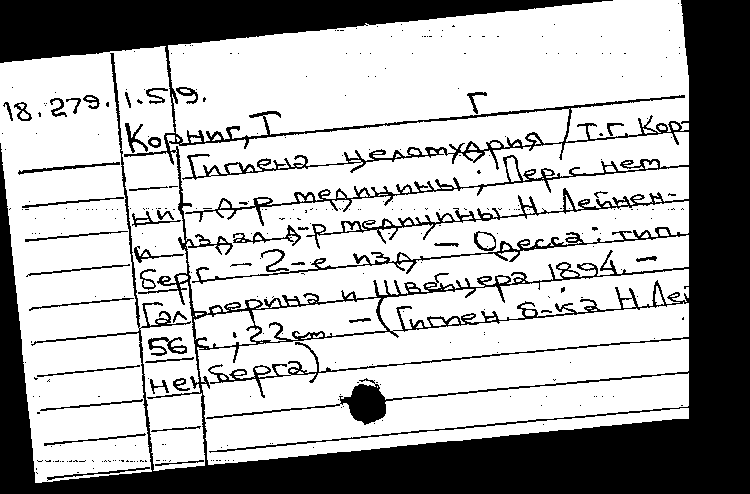 18.279.1.519.
Корниг, Т Г
Гигиена целомудрия / Т.Г. Кор-
ниг, д-р медицины; Пер. с нем.
и издал д-р медицины Н. Лейнен-
берг. - 2-е изд. - Одесса: тип.
Гальперина и Швейцера, 1894. -
56 с.; 22 см. - (Гигиен. б-ка Н. Лей
ненберга).